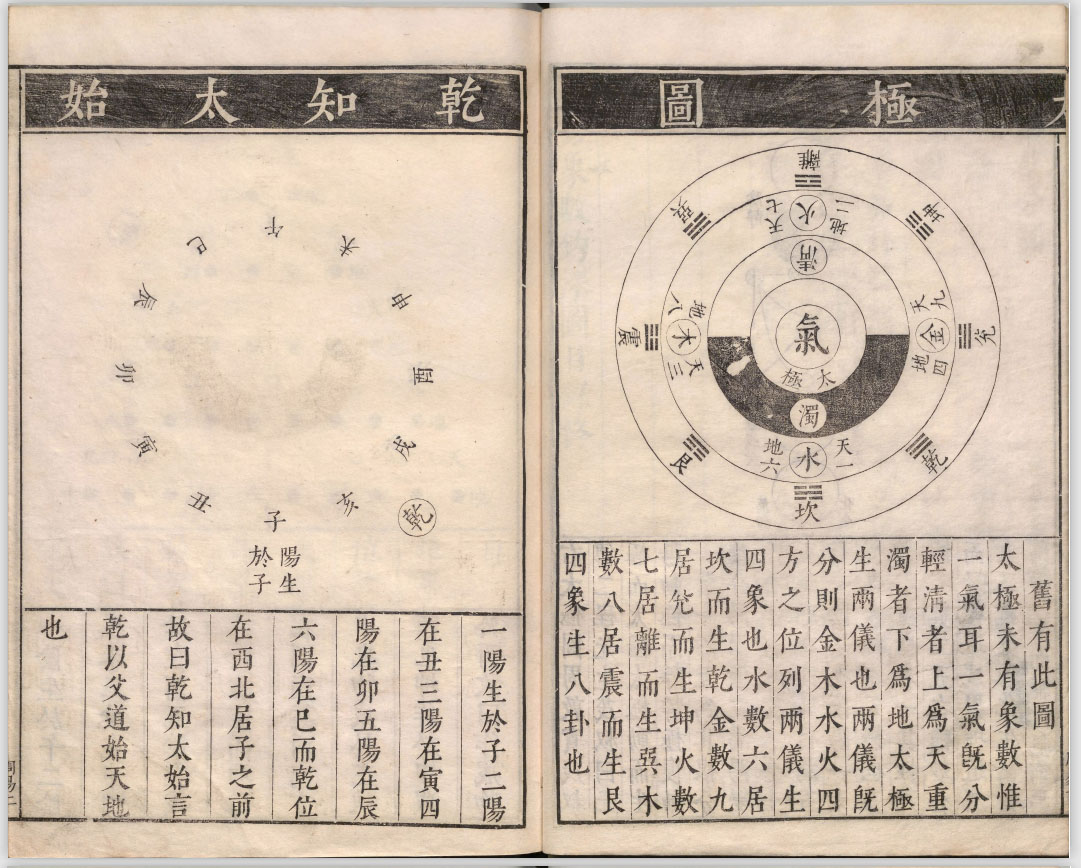 太極圖
離
坤
兊
乾
坎
艮
震
巽
火
地二
天七
金
天九
地四
水
天一
地六
木
天三
地八
清
濁
氣
太極
舊有此圖
太極未有象數惟
一氣耳一氣旣分
輕清者上爲天重
濁者下爲地太極
生兩儀也兩儀旣
分則金木水火四
方之位列兩儀生
四象也水數六居
坎而生乾金數九
居兊而生坤火數
七居離而生巽木
數八居震而生艮
四象生八卦也
乾知太始
午
未
申
酉
戌
亥
乾
子
陽生
於子
丑
寅
卯
辰
巳
一陽生於子二陽
在丑三陽在寅四
陽在卯五陽在辰
六陽在巳而乾位
在西北居子之前
故曰乾知太始言
乾以父道始天地
也